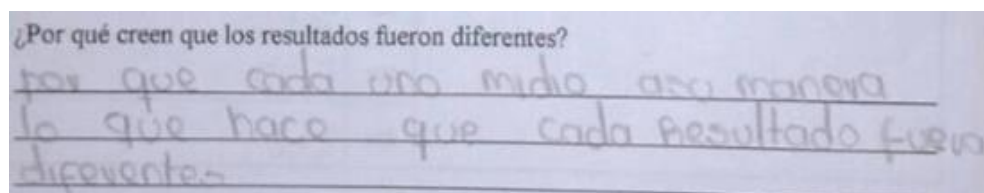 ¿Por qué creen que los resultados fueron diferentes?
por que cada uno midio asu manera
lo que hace que cada Resultado fuera
diferentes